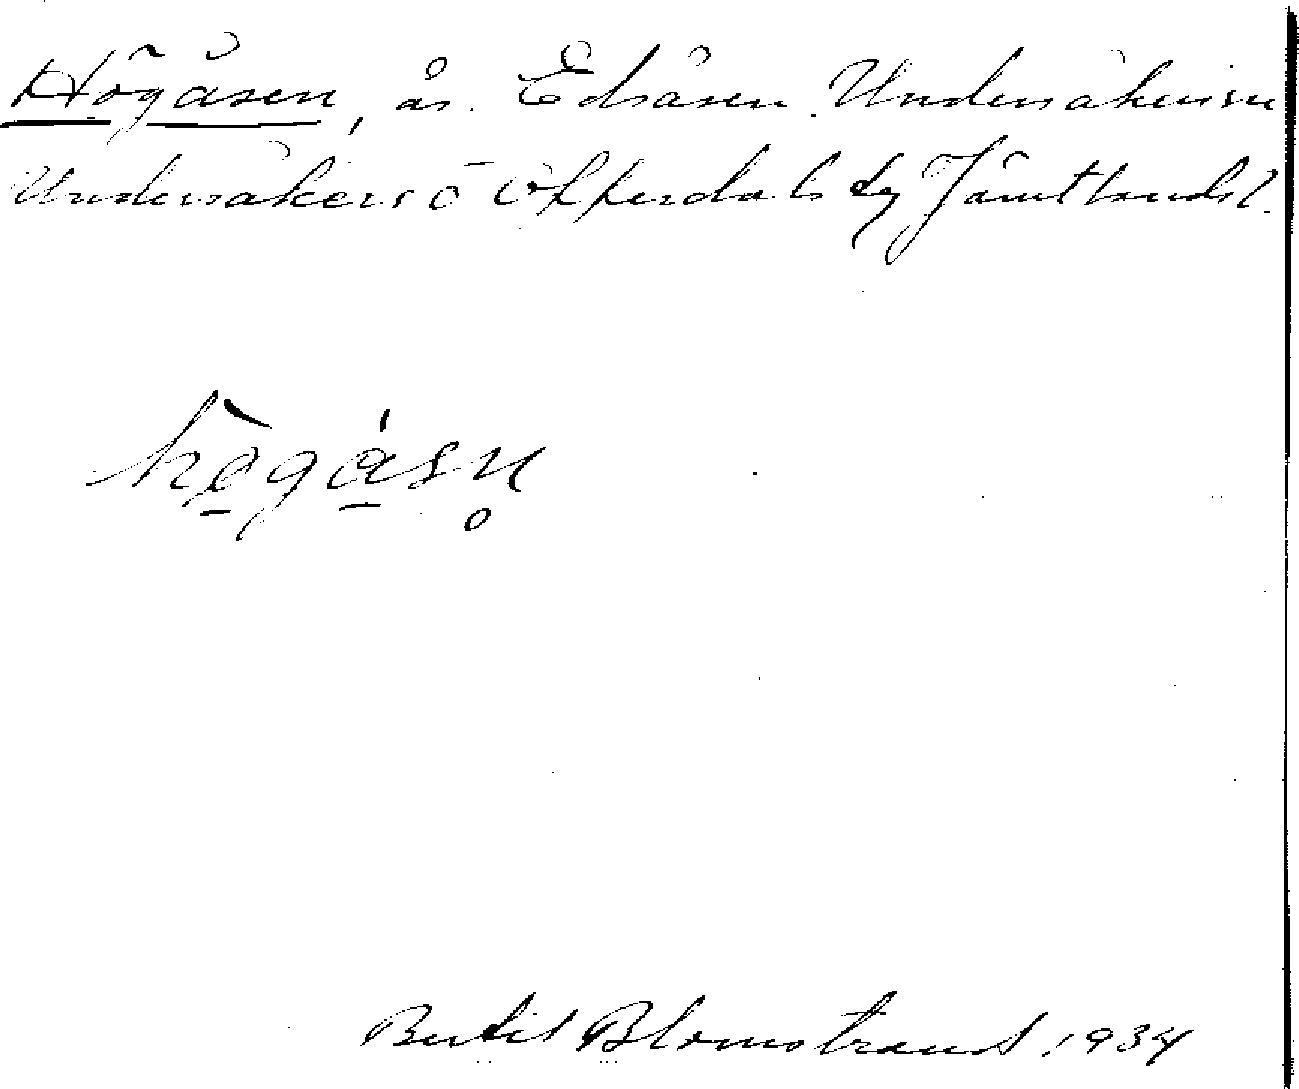 Högåsen, ås. Edsåsen. Undersåkers sn
Undersåkers o Offerdals tg Jämtlands l.
hǫ̀gą́sn̥
Bertil Blomstrand, 1934